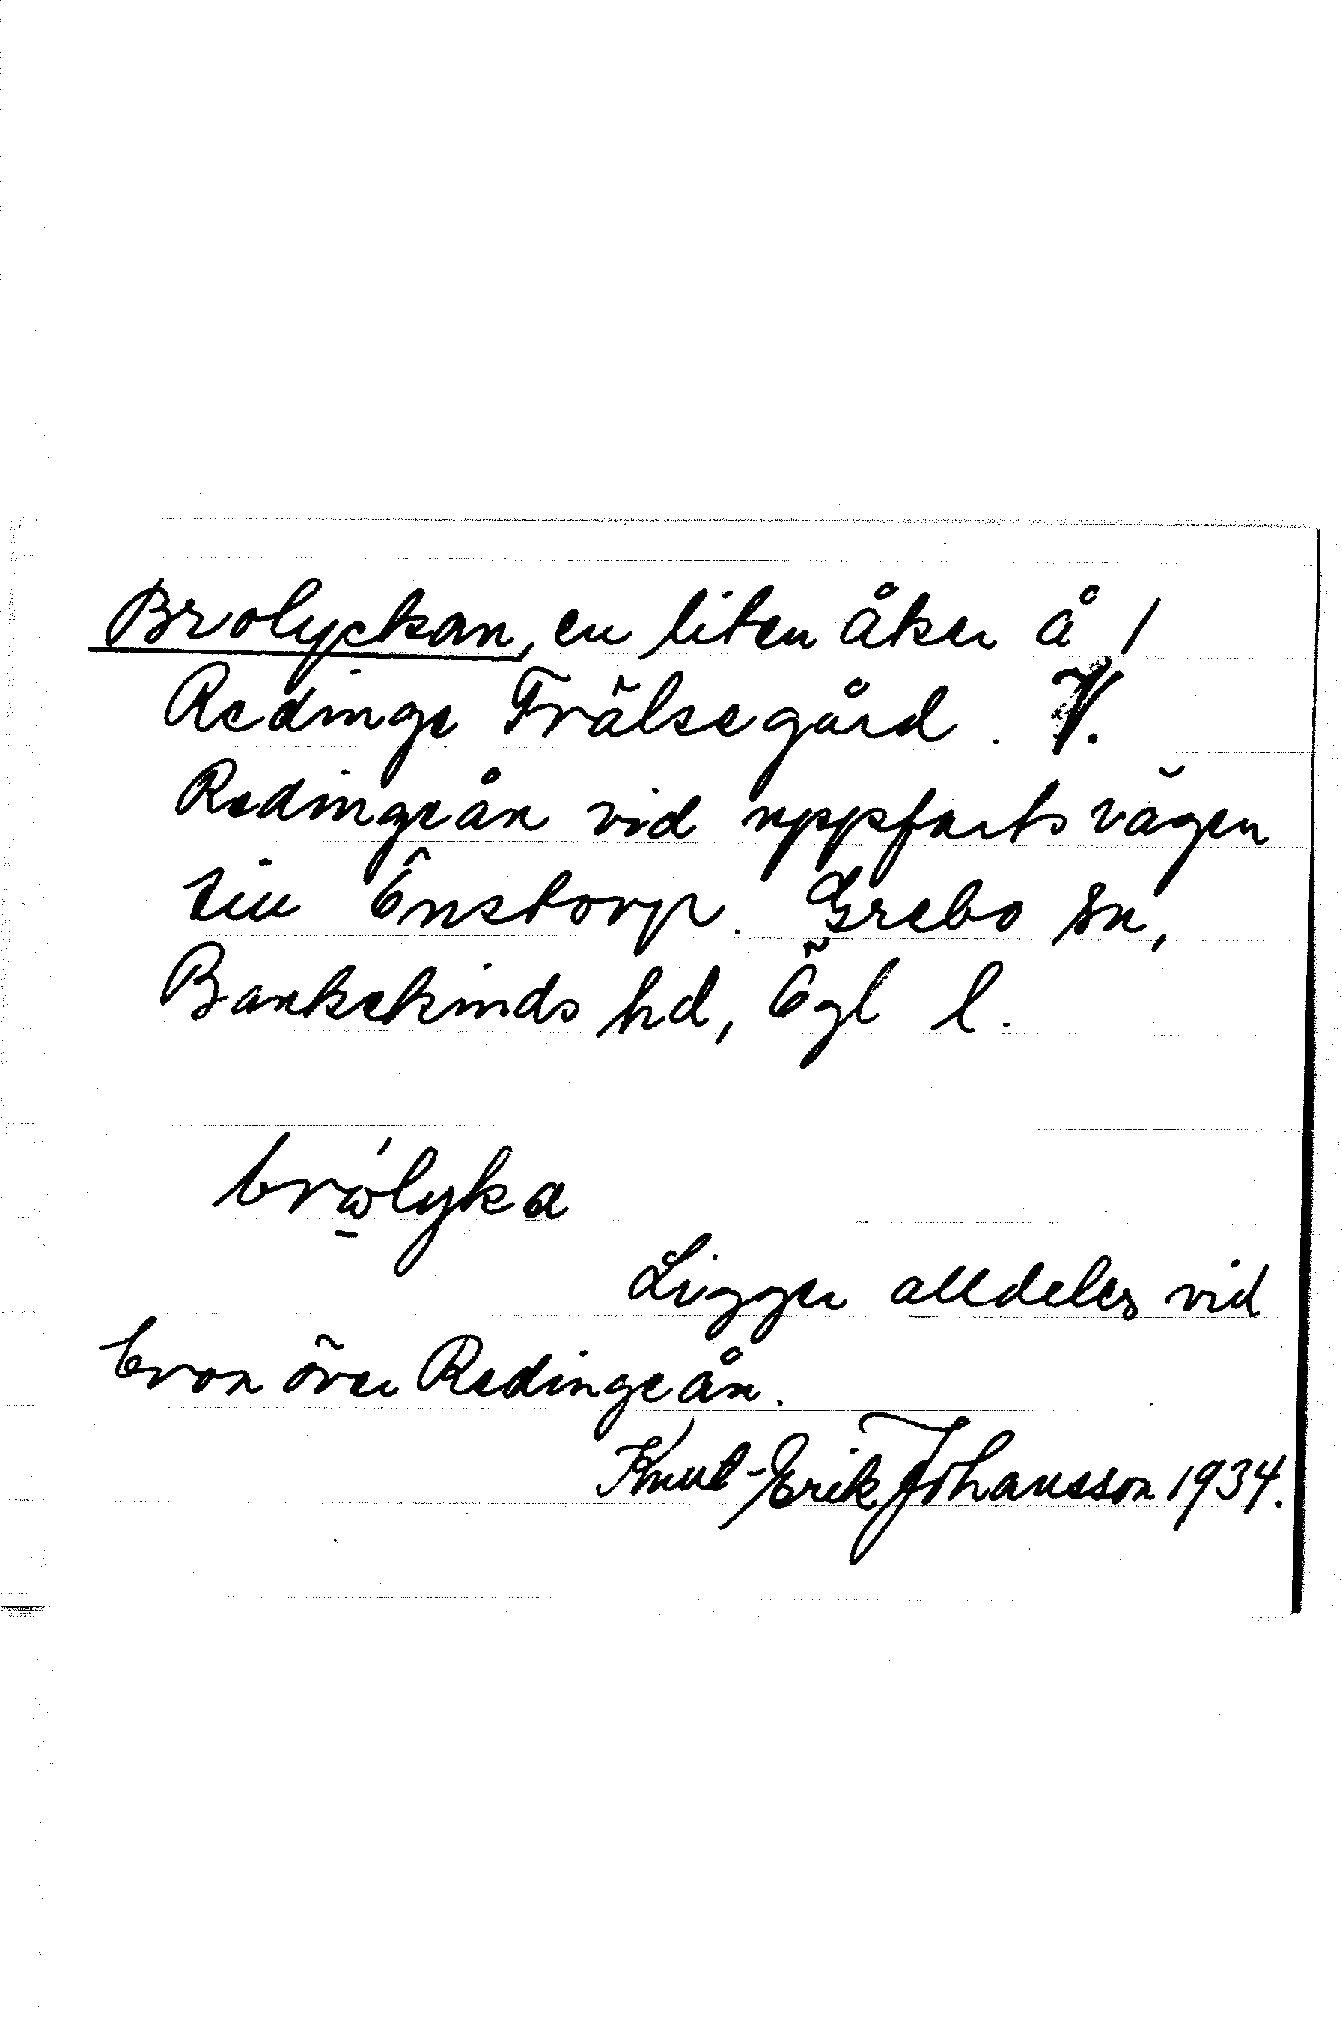 Brolyckan, en liten åker å 1
Redinge Frälsegård. V.
Redingeån vid uppfartsvägen
till Önstorp. Grebo sn,
Bankekinds hd, Ögl l.
brώ̱lyka
Ligger alldeles vid
bron över Redingeån.
Knut-Erik Johansson 1934.